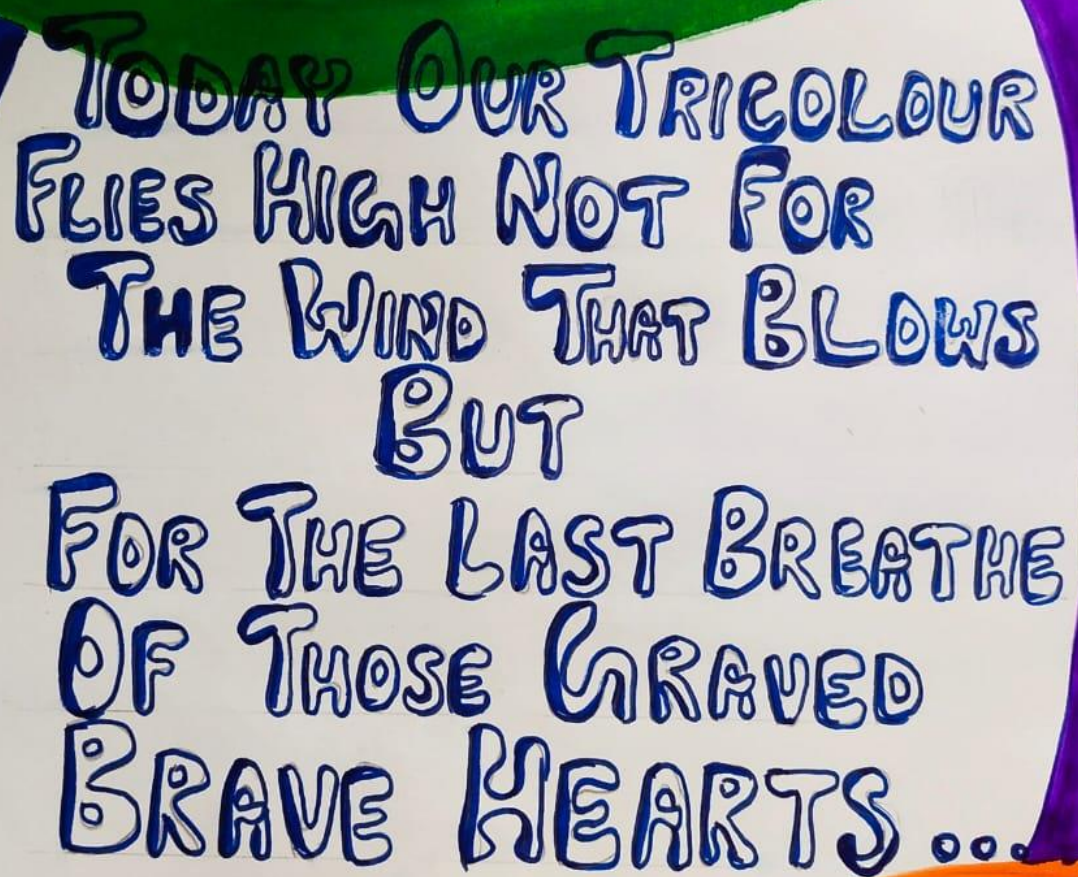 TODAY OUR TRICOLOUR
FLIES HIGH NOT FOR
THE WIND THAT BLOWS
BUT
FOR THE LAST BREATHE
OF THOSE GRAVED
BRAVE HEARTS...